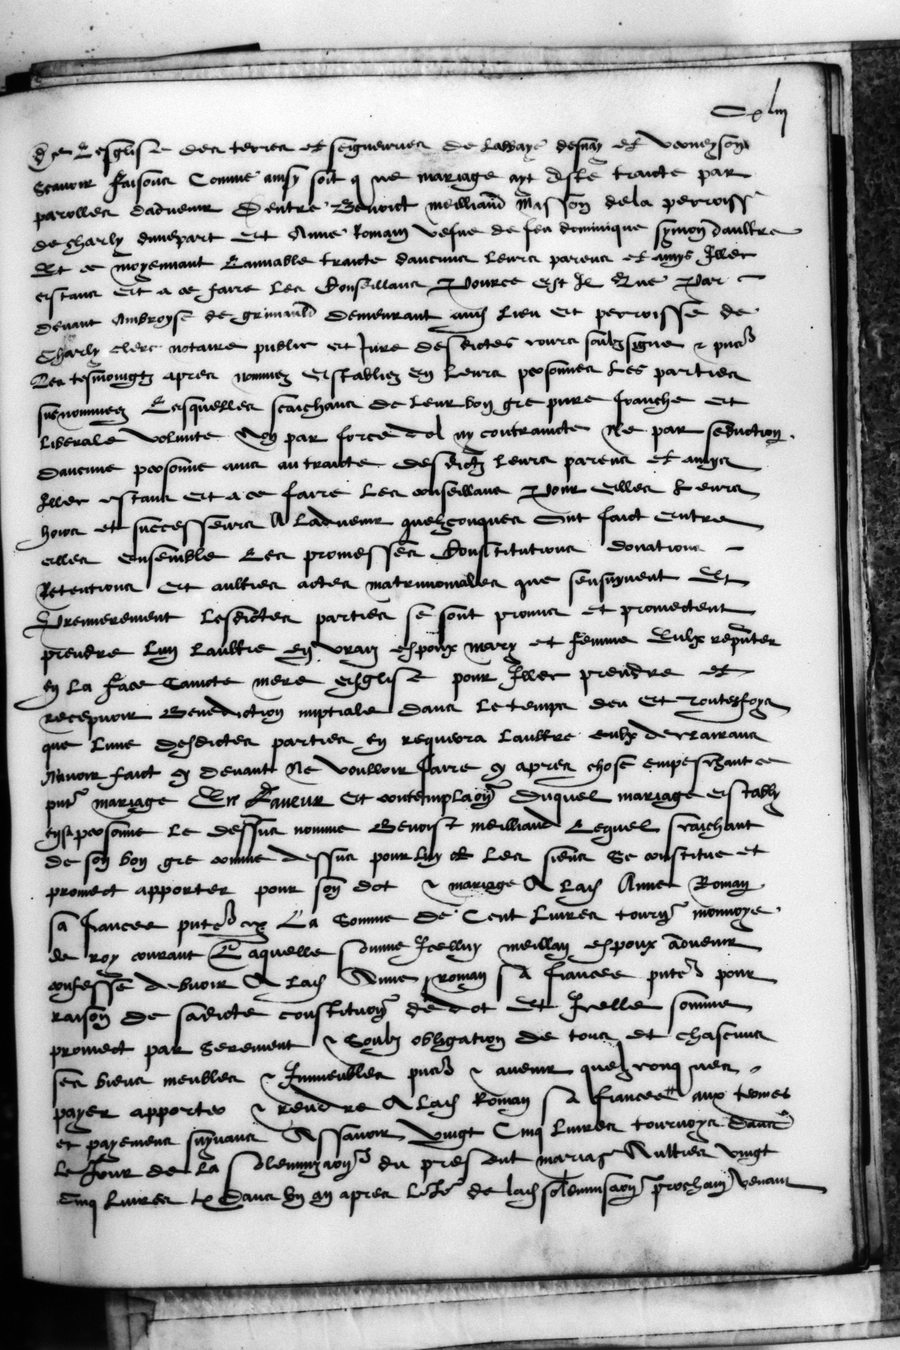 Cxliij
de Lesglise des terres et seigneuries de labbaye desnay et vernyson
Scavoir faisons Comme ainsy soit que mariage ayt esté traicte par
parolles dadvenir Dentre Benoict meilliand masson de la perroisse
de charly dunepart Et Anne Romain vefve de feu dominique symon daultre
Et ce moyennant Lamiable traicte daucuns leurs parens et amys Illec
estans Et a ce faire Les Conseillans Pource est Il Que Par
devant Ambroyse de grimauld Demeurant aud lieu Et perroisse de
Charly clerc notaire public et Jure desdictes cours soubzsigne & pns
Les tesmoingtz apres nommez Establiez en leurs personnes Les parties
susnommees Lesquelles scaichans de leur bon gre pure franche et
liberale volunte Non par force dol ny contraincte Ne par seduction
daucune personne ains au traicte desdictz leurs parens et amys
Illec estans Et a ce faire Les conseillans Pour elles Leurs
hoirs et successeurs A Ladvenir quelzconques Ont faict Entre
elles ensemble Les promesses Constitutions donations
Retentions Et aultres actes matrimoniales que sensuyvent Et
Premierement Lesdictes parties se sont promis et promectent
prendre Lun Laultre en vrays espoux mary et femme Eulx repnter
en La face saincte mere esglise pour Illec prendre et
recepvoir Benediction nuptiale dans Le temps deu Et Toutesfoys
que lune desdictes parties en requerra laultre eulx declairans
Navoir faict cy devant Ne voulloir faire cy apres chose empeschant ce
pnt mariage En Faveur Et contemplaon Duquel mariage estably
en sa personne Le dessus nomme Benoist meilliand Lequel scaichant
de son bon gre comme dessus pour luy et les siens Se constitue et
promect apporter pour son dot & mariage A Lad Anne Roman
sa fiancee pnte La Somme de Cent Livres tourn monnoye
de roy courant Laquelle somme Icelluy meillan espoux advenir
confesse debvoir A Lad Anne roman sa fiancee pnte pour
raison de sadicte constituon de dot Et Icelle somme
promect par Serement & Soubz obligation de tous et chascuns
ses biens meubles & Immeubles pns & avenir quelzconques
payer apporter & rendre A Lad Roman sa fiancee aux termes
et payemens suyvans Assavoir Vingt Cinq Livres tournoys dans
le Jour de la solempnizaon du present mariage Aultres vingt
Cinq Livres tz Dans un an apres le jr de lad solempnisaon prochain Venant